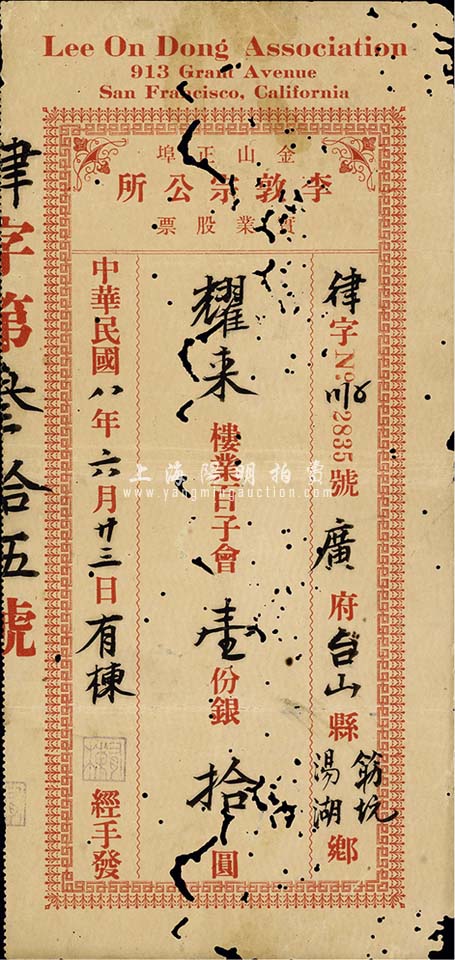 Lee On Dong Association
913 Grant Avenue
San Francisco, California
金山正埠
李敦宗公所
實業股票
律字№2835號 廣府台山縣 筋坑 湯湖 鄉
耀来 樓業百子會 壹份銀 拾 圓
中華民國八年六月廿三日 有棟 經手發
律字第叁拾五號
上海陽明拍賣
www.yangmingauction.com